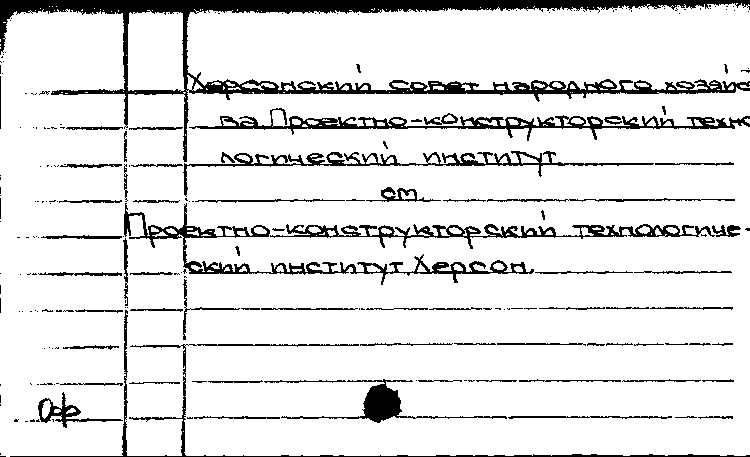 Херсонский совет народного хозяйс
ва. Проектно-конструкторский техно
логический институт.
см.
Проектно-конструкторский технологиче-
ский институт. Херсон.
Оф